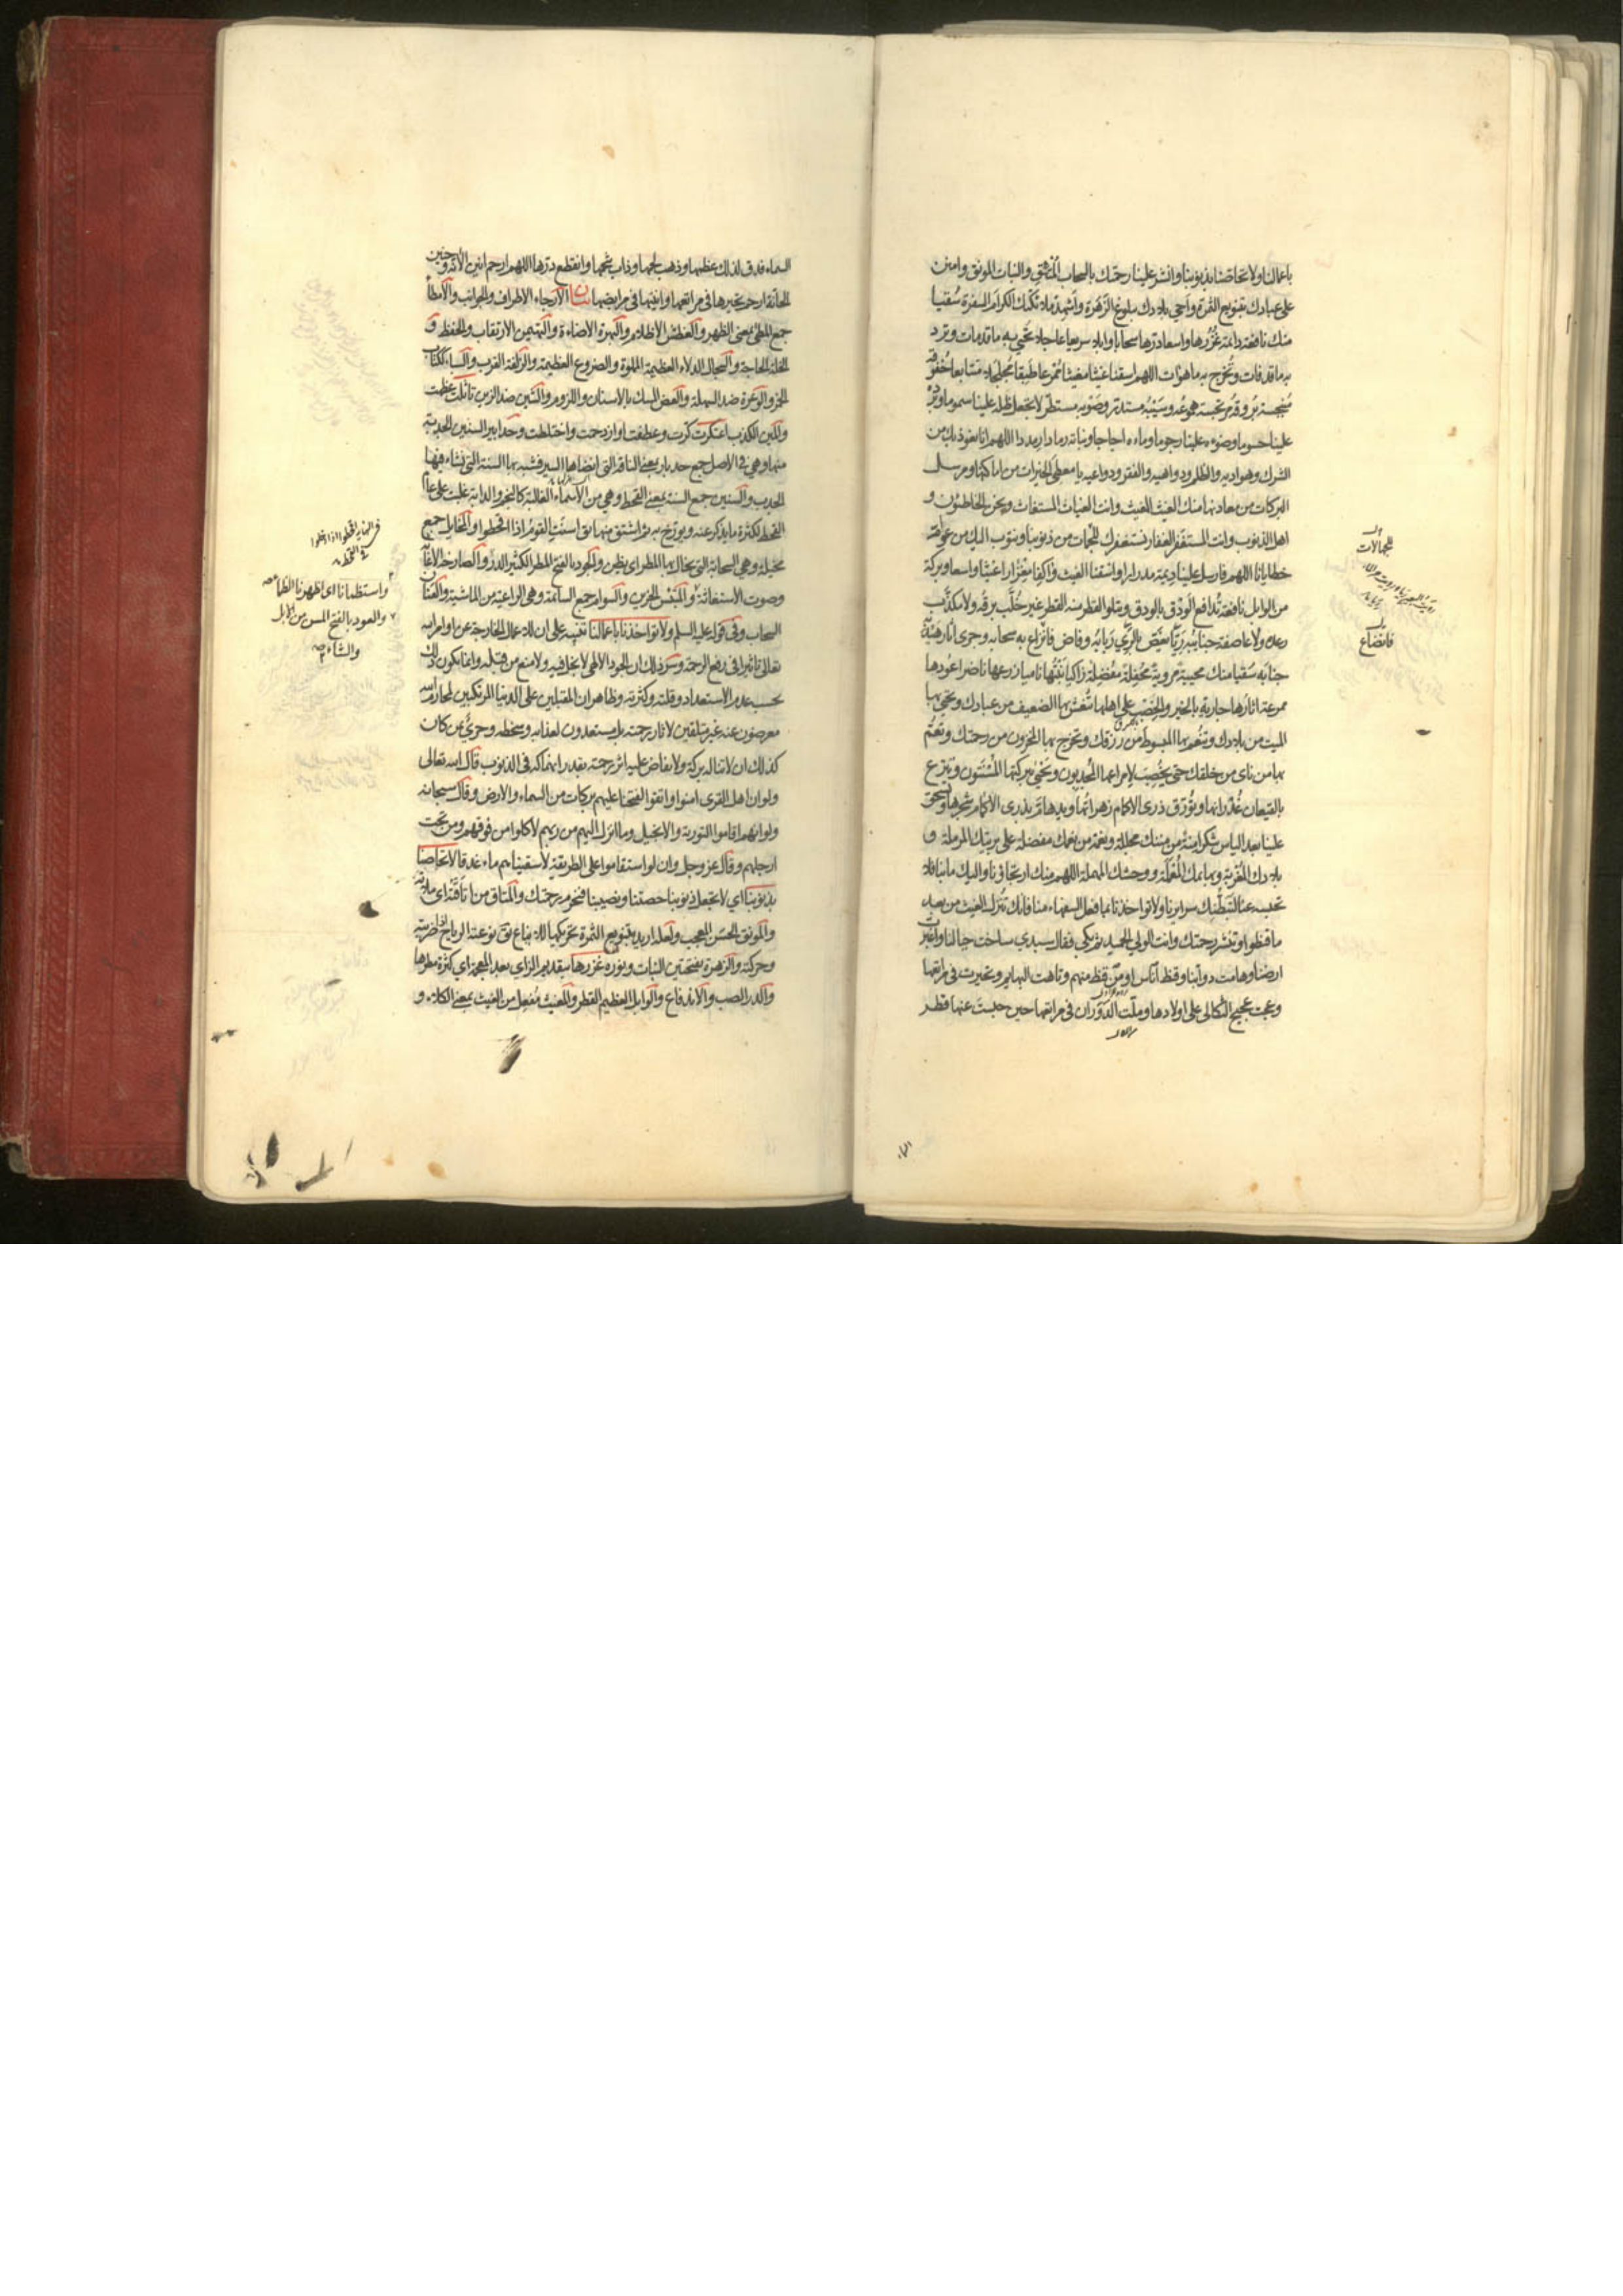 باعمالنا ولا تحاصنا بذنوبنا وانشر علينا رحمتك بالسحاب المتئق والنبات المونق وامنن
على عبادك بتنويع الثمرة واحي بلادك ببلوغ الزهرة واشهد ملائكتك الكرام السفرة سقيا
منك نافعة دائمة غزرها واسعا درها سحابا وابلا سريعا عاجلا تحيي به ما قد مات وترد
به ما قد فات وتخرج به ما هو آت اللهم اسقنا غيثا مغيثا ممرعا طبقا مجلجلا متتابعا خفوقه
منبجسة بروقه مرتجسة هموعه وسيبه مستدر وصوبه مستطر لا تجعل ظله علينا سموما وبرده
علينا حسوما وضوءه علينا رجوما وماءه اجاجا ونباته رمادا رمددا اللهم انا نعوذ بك من
الشرك وهواديه والظلم ودواهيه والفقر ودواعيه يا معطي الخيرات من اماكنها ومرسل
البركات من معادنها منك الغيث المغيث وانت الغياث المستغاث ونحن الخاطئون و
اهل الذنوب وانت المستغفر الغفار نستغفرك للجهات من ذنوبنا ونتوب اليك من عوام
خطايانا اللهم فارسل علينا ديمة مدرارا واسقنا الغيث واكفا مغزارا غيثا واسعا وبركة
من الوابل نافعة تدافع الودق بالودق ويتلو القطر منه القطر غير خلب برقه ولا مكذب
رعده ولا عاصفة جنائبه ريا يغص بالري ربابه وفاض فانزاع به سحابه وجرى آثار هيدبه
جنابه سقيا منك محيية مروية محفلة مفضلة زاكيا نبتها ناميا زرعها ناضرا عودها
ممرعة اثارها جارية بالخير والخصب على اهلها تنعش بها الضعيف من عبادك وتحيي بها
الميت من بلادك وتنعم بها المبسوط من رزقك وتخرج بها المخزون من رحمتك وتعم
بها من نأى من خلقك حتى يخصب لامراعها المجدبون ويحيى ببركتها المسنتون وتترع
بالقيعان غدرانها وتورق ذرى الاكام زهراتها ويدهام بذرى الاكام شجرها وتستحق
علينا بعد الياس شكرا منة من مننك مجللة ونعمة من نعمك مفضلة على بريتك المرملة و
بلادك المغربة وبهائمك المعملة ووحشك المهملة اللهم منك ارتجاؤنا واليك مآبنا فلا
تحبسه عنا لتبطنك سرايرنا ولا تواخذنا بما فعل السفهاء منا فانك تنزل الغيث من بعد
ما قنطوا وتنشر رحمتك وانت الولي الحميد ثم بكى فقال سيدي ساخت جبالنا واغبرت
ارضنا وهامت دوابنا وقنط اناس او من قنط منهم وتاهت البهائم وتحيرت في مراتعها
وعجت عجيج الثكالى على اولادها وملت الدوران في مراتعها حين حبست عنها قطر
فانصاع
السماء فدق لذلك عظمها وذهب لحمها وذاب شحمها وانقطع درها اللهم ارحم انين الآنة وحنين
الحانة ارحم تحيرها في مراتعها وانينها في مرابضها بيان الارجاء الاطراف والجوانب والامطا
جمع المطى بمعنى الظهر والغطش الاظلام والبهرة الاضاءة والتهيمن الارتقاب والحفظ و
الخلة الحاجة والسجال الدلاء العظيمة المملوة والضروع العظيمة والزلفة القرب والسباء ككتاب
الخمر والوعرة ضد السهلة والعض المسك بالاسنان واللزوم والشين ضد الزين تاثلت عظمت
والمين الكذب اعتكرت كرت وعطفت او ازدحمت واختلطت وحدابير السنين الجدبة
منها وهي في الاصل جمع حدبار بمعنى الناقة التي انضاها السير فشبه بها السنة التي نشاء فيها
الجدب والسنين جمع السنة بمعنى القحط وهي من الاسماء الغالبة كالنجم والدابة غلبت على عام
القحط لكثرة ما يذكر عنه ويورخ به ثم اشتق منها بق اسنت القوم اذا قحطوا والمخايل جمع
مخيلة وهي السحابة التي يخال بها المطر اي يظن والجود بالفتح المطر الكثير الدر والصارخة الاغاثة
وصوت الاستغاثة والمبتئس الحزين والسوام جمع السائمة وهي الراعية من الماشية والعنان
السحاب وفي قوله عليه السلم ولا تواخذنا باعمالنا تنبيه على ان للاعمال الخارجة عن اوامر الله
تعالى تاثيرا في رفع الرحمة وسر ذلك ان الجود الالهي لا بخل فيه ولا منع من قبله وانما يكون ذلك
بحسب عدم الاستعداد وقلته وكثرته وظاهر ان المقبلين على الدنيا المرتكبين لمحارم الله
معرضون عنه غير متلقين لاثار رحمته بل مستعدون لعذابه وسخطه وحري من كان
كذلك ان لا تناله بركة ولا يفاض عليه اثر رحمته بقدر انهماكه في الذنوب قال الله تعالى
ولو ان اهل القرى امنوا واتقوا لفتحنا عليهم بركات من السماء والارض وقال سبحانه
ولو انهم اقاموا التورية والانجيل وما انزل اليهم من ربهم لاكلوا من فوقهم ومن تحت
ارجلهم وقال عز وجل وان لو استقاموا على الطريقة لاسقيناهم ماء غدقا لا تحاصنا
بذنوبنا اي لا تجعل ذنوبنا حصتنا ونصيبنا فنحرم رحمتك والمتاق من اتاقه اي ملاته
والمونق الحسن المعجب ولعله اريد بتنويع الثمرة تحريكها للايناع بق نوعته الرياح اذا ضربته
وحركته والزهرة بفتحتين النبات ونوره غزرها بتقديم الزاي بعد المعجمة اي كثرة مطرها
والدر الصب والاندفاع والوابل العظيم القطر والمغيث مفعل من الغيث بمعنى الكلاء و
واستظمانا اي اظهرنا الظماء
والعود بالفتح المسن من الابل
والشاء